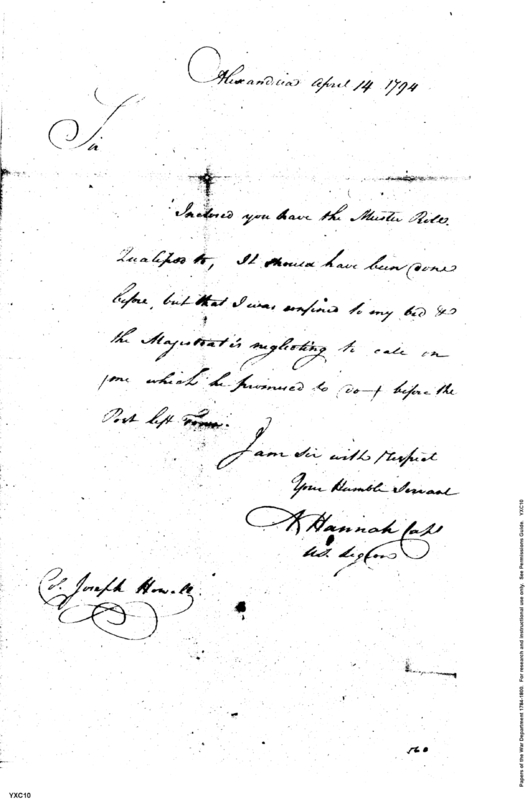 Alexandria April 14 1794
Sir
Inclosed you have the Muster Roll
Qualified to, It should have been done
before, but that I was confined to my bed &
the Majestrat is neglecting to call on
me which he promised to do before the
Post left Town.
I am Sir with respect
Your Humble Servant
N Hannah Capt
US. Legion
Joseph Howell
560
YXC10
Papers of the War Department 1784-1800. For research and instructional use only. See Permissions Guide. YXC10